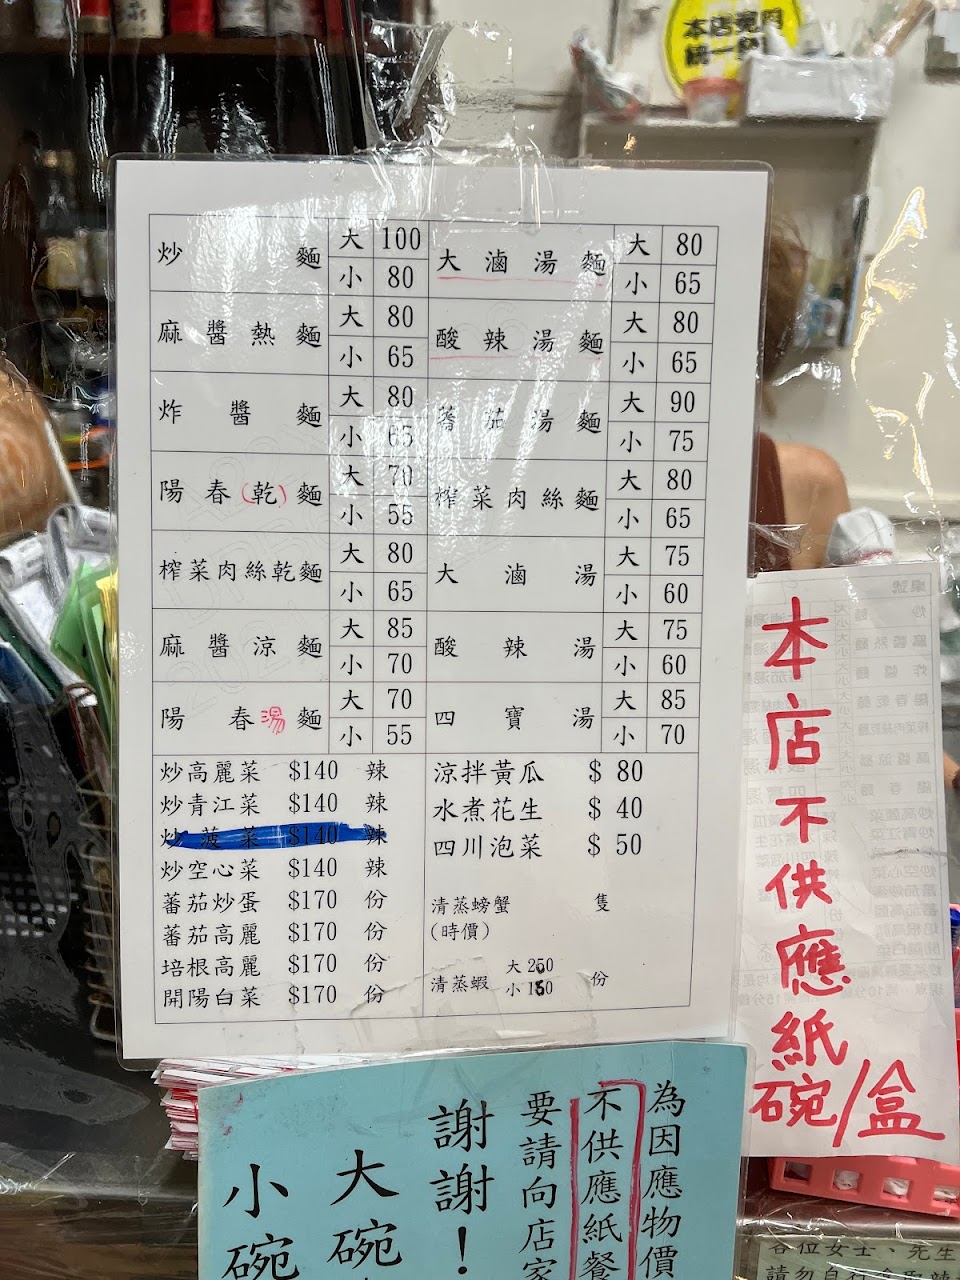 本店免用
炒麵 大 100
小 80
麻醬熱麵 大 80
小 65
炸醬麵 大 80
小 65
陽春(乾)麵 大 70
小 55
榨菜肉絲乾麵 大 80
小 65
麻醬涼麵 大 85
小 70
陽春湯麵 大 70
小 55
大滷湯麵 大 80
小 65
酸辣湯麵 大 80
小 65
蕃茄湯麵 大 90
小 75
榨菜肉絲麵 大 80
小 65
大滷湯 大 75
小 60
酸辣湯 大 75
小 60
四寶湯 大 85
小 70
炒高麗菜 $140 辣
炒青江菜 $140 辣
炒菠菜 $140 辣
炒空心菜 $140 辣
蕃茄炒蛋 $170 份
蕃茄高麗 $170 份
培根高麗 $170 份
開陽白菜 $170 份
涼拌黃瓜 $ 80
水煮花生 $ 40
四川泡菜 $ 50
清蒸螃蟹 隻
(時價)
清蒸蝦 大 250 份
小 180
本店不供應紙碗/盒
為因應物價
不供應紙餐
要請向店家
謝謝!
大碗
小碗
各位女士、先生